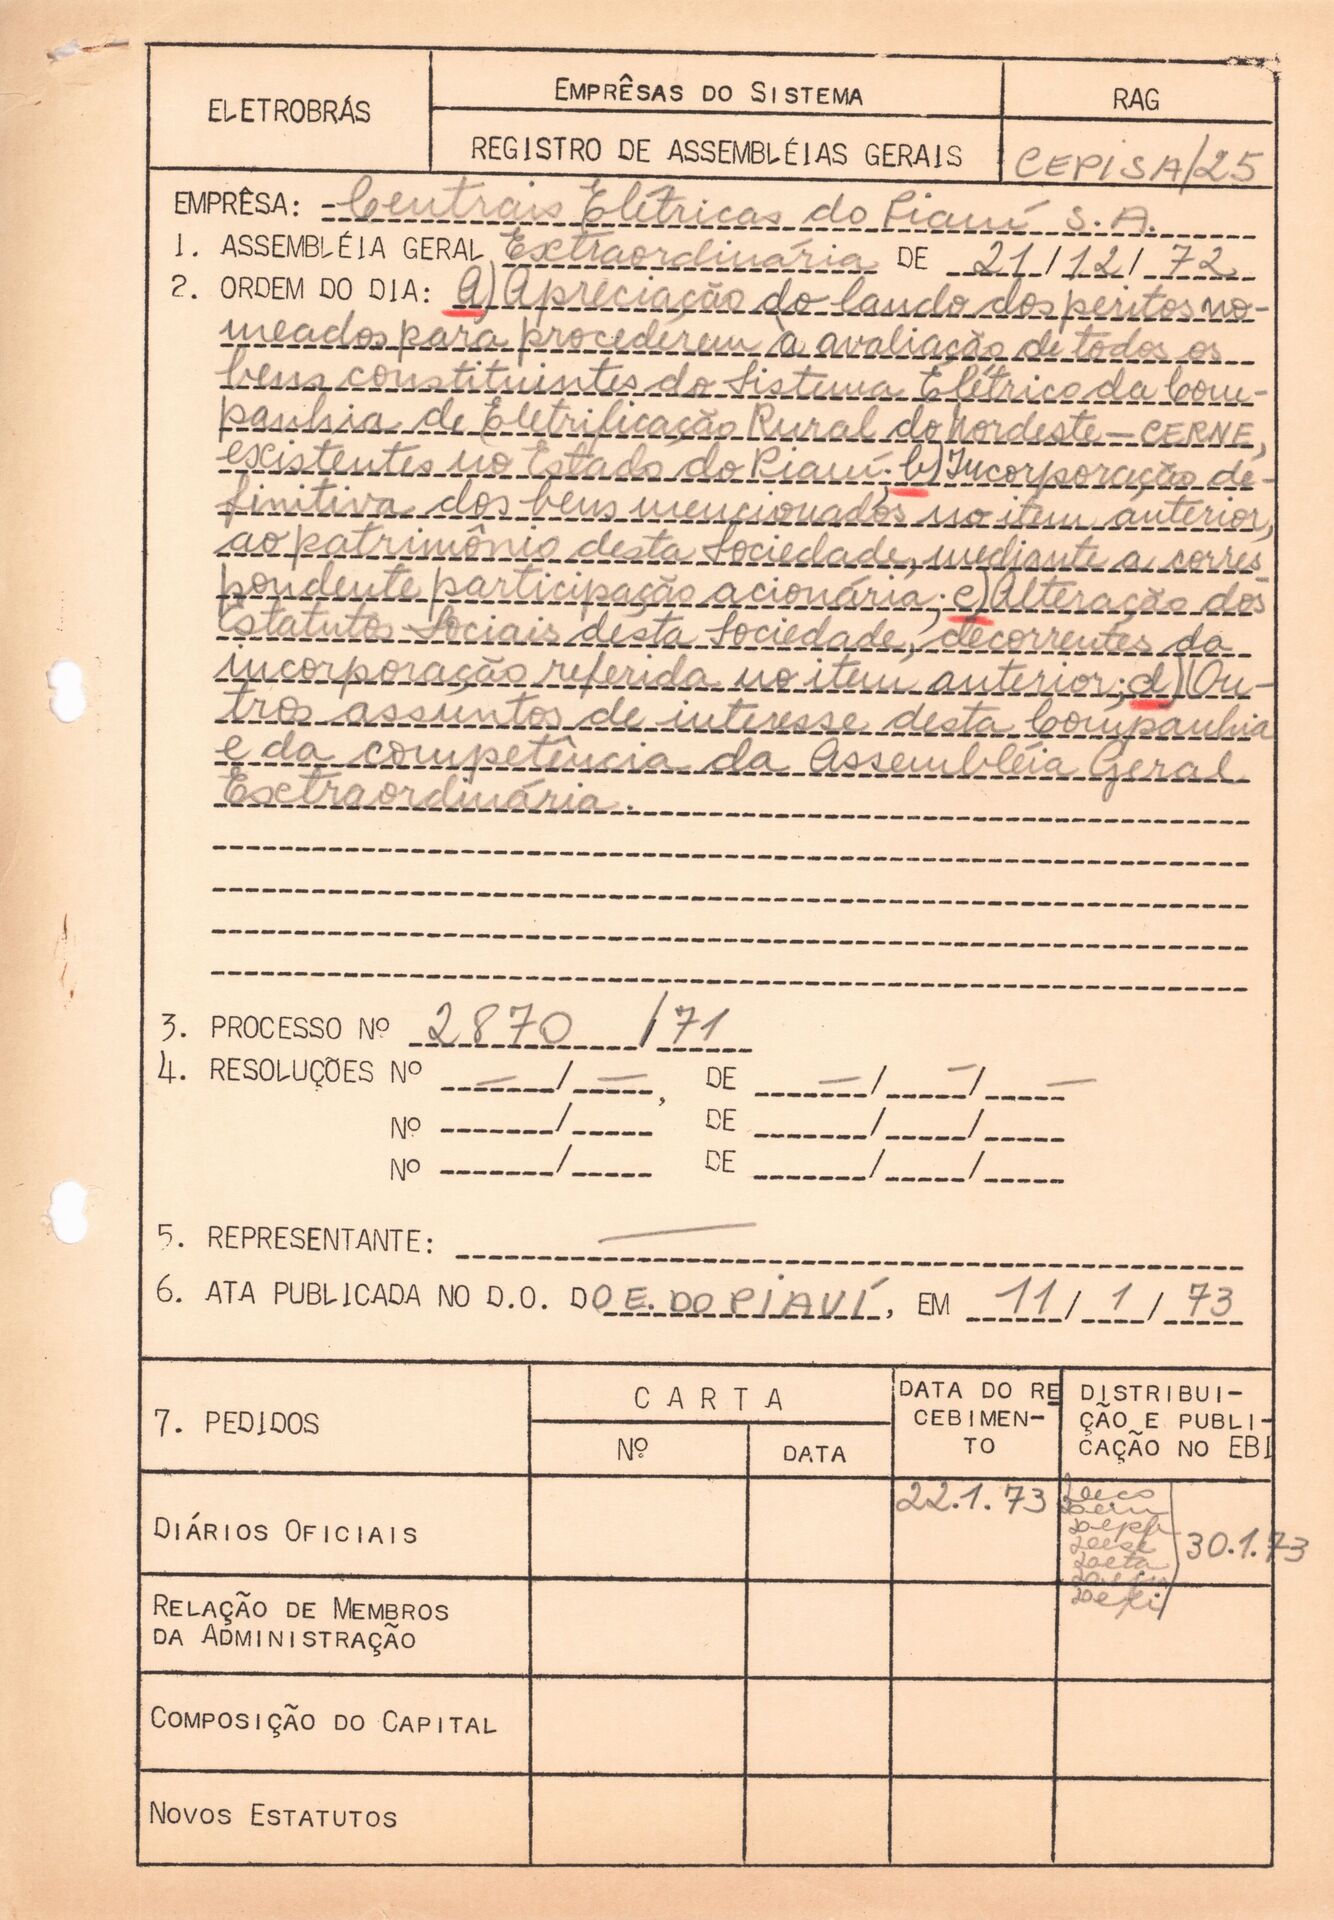 ELETROBRÁS
EMPRÊSAS DO SISTEMA
RAG
REGISTRO DE ASSEMBLÉIAS GERAIS
CEPISA/25
EMPRÊSA: Centrais Elétricas do Piauí S.A.
1. ASSEMBLÉIA GERAL Extraordinária DE 21/12/72
2. ORDEM DO DIA: a) Apreciação do laudo dos peritos no-
meados para procederem à avaliação de todos os
bens constituintes do Sistema Elétrico da Com-
panhia de Eletrificação Rural do Nordeste - CERNE,
existentes no Estado do Piauí; b) Incorporação de-
finitiva dos bens mencionados no item anterior,
ao patrimônio desta Sociedade, mediante a corres
pondente participação acionária; c) Alteração dos
Estatutos Sociais desta Sociedade, decorrentes da
incorporação referida no item anterior; d) Ou-
tros assuntos de interesse desta Companhia
e da competência da Assembléia Geral
Extraordinária.
3. PROCESSO Nº 2870/71
4. RESOLUÇÕES Nº —/—, DE —/—/—
Nº / DE / /
Nº / DE / /
5. REPRESENTANTE: —
6. ATA PUBLICADA NO D.O. DO E. DO PIAUÍ, EM 11/1/73
7. PEDIDOS
CARTA
Nº
DATA
DATA DO RE
CEBIMEN-
TO
DISTRIBUI-
ÇÃO E PUBLI-
CAÇÃO NO EBI
DIÁRIOS OFICIAIS
22.1.73
30.1.73
RELAÇÃO DE MEMBROS
DA ADMINISTRAÇÃO
COMPOSIÇÃO DO CAPITAL
NOVOS ESTATUTOS